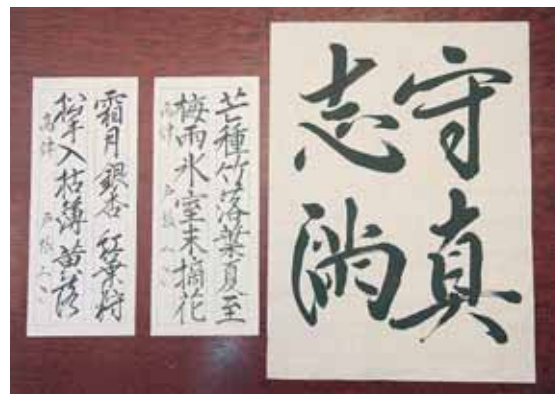 守真
志満
芒種竹落葉夏至
梅雨氷室末摘花
霜月銀杏紅葉狩
松手入枯薄黄落
高津